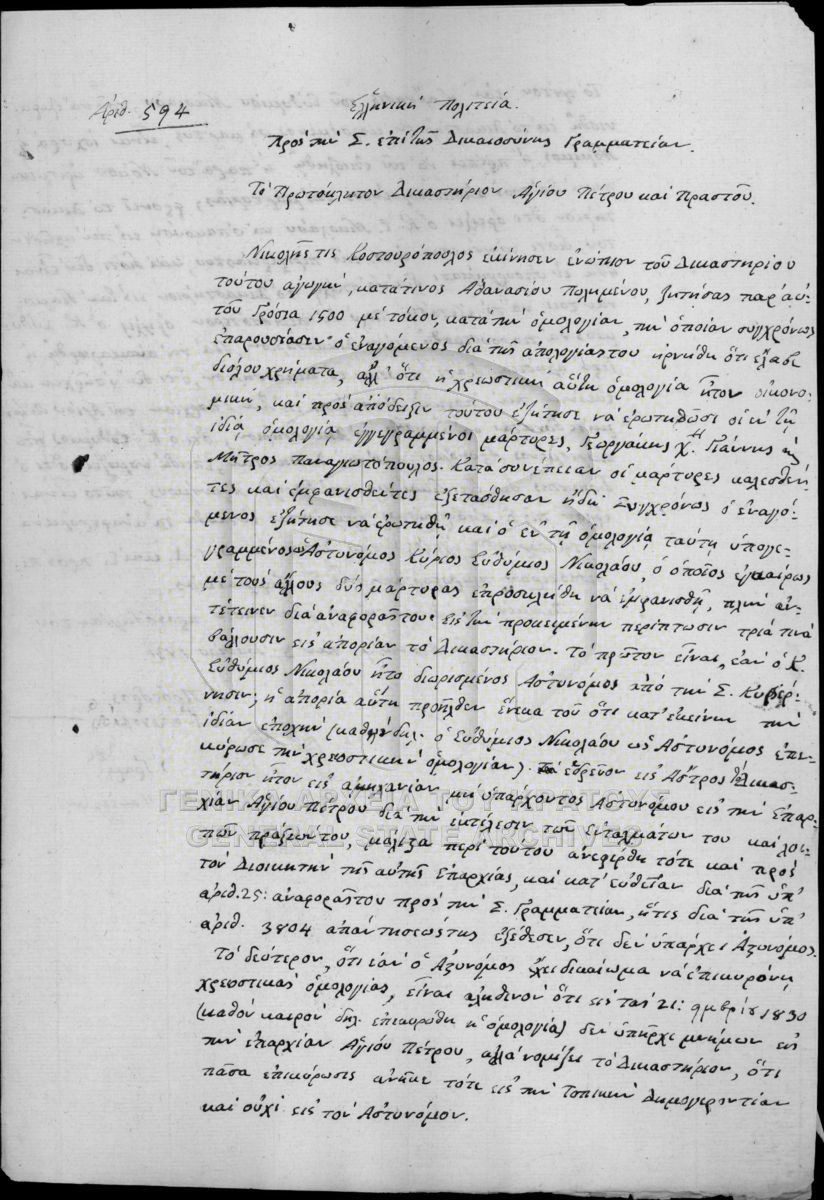 Ἀριθ. 594
Ἑλληνικὴ Πολιτεία.
Πρὸς τὴν Σ. ἐπὶ τῆς Δικαιοσύνης Γραμματείαν.
Τὸ Πρωτόκλητον Δικαστήριον Ἁγίου Πέτρου καὶ Πραστοῦ.
Νικολῆς τις Κοστουρόπουλος ἐκίνησεν ἐνώπιον τοῦ Δικαστηρίου
τούτου ἀγωγὴν, κατά τινος Ἀθανασίου Πολημένου, ζητήσας παρ' αὐ-
τοῦ Γρόσια 1500 μὲ τόκον, κατὰ τὴν ὁμολογίαν, τὴν ὁποίαν συγχρόνως
ἐπαρουσίασεν· ὁ ἐναγόμενος διὰ τῆς ἀπολογίας του ἠρνήθη ὅτι ἔλαβε
διόλου χρήματα, ἀλλ' ὅτι ἡ χρεωστικὴ αὕτη ὁμολογία ἦτον οἰκονο-
μικὴ, καὶ πρὸς ἀπόδειξιν τούτου ἐζήτησε νὰ ἐρωτηθῶσι οἱ ἐν τῇ
ἰδίᾳ ὁμολογίᾳ ἐγγεγραμμένοι μάρτυρες, Γεωργάκης Χ΄΄ Γιάννης καὶ
Μῆτρος Παναγιωτόπουλος. Κατὰ συνέπειαν οἱ μάρτυρες καλεσθέν-
τες καὶ ἐμφανισθέντες ἐξετάσθησαν ἤδη. Συγχρόνως ὁ ἐναγό-
μενος ἐζήτησε νὰ ἐρωτηθῇ καὶ ὁ ἐν τῇ ὁμολογίᾳ ταύτῃ ὑπογε-
γραμμένος ὡς Ἀστυνόμος Κύριος Εὐθύμιος Νικολάου, ὁ ὁποῖος ἐγκαίρως
μὲ τοὺς ἄλλους δύο μάρτυρας ἐπροσκλήθη νὰ ἐμφανισθῇ, πλὴν ἀν-
τέτεινεν δι' ἀναφορᾶς του· εἰς τὴν προκειμένην περίπτωσιν τρία τινὰ
βάλλουσιν εἰς ἀπορίαν τὸ Δικαστήριον. Τὸ πρῶτον εἶναι, ἐὰν ὁ Κ.
Εὐθύμιος Νικολάου ἦτο διωρισμένος Ἀστυνόμος ἀπὸ τὴν Σ. Κυβέρ-
νησιν; ἡ ἀπορία αὕτη προῆλθεν ἕνεκα τοῦ ὅτι κατ' ἐκείνην τὴν
ἰδίαν ἐποχὴν (καθ' ἣν δηλ. ὁ Εὐθύμιος Νικολάου ὡς Ἀστυνόμος ἐπε-
κύρωσε τὴν χρεωστικὴν ὁμολογίαν) ἑδρεῦον εἰς Ἄστρος τὸ Δικασ-
τήριον ἦτον εἰς ἀμηχανίαν μὴ ὑπάρχοντος Ἀστυνόμου εἰς τὴν Ἐπαρ-
χίαν Ἁγίου Πέτρου διὰ τὴν ἐκτέλεσιν τῶν ἐνταλμάτων του καὶ λοι-
πῶν πράξεών του, μάλιστα περὶ τούτου ἀνεφέρθη τότε καὶ πρὸς
τὸν Διοικητὴν τῆς αὐτῆς ἐπαρχίας, καὶ κατ' εὐθεῖαν διὰ τῆς ὑπ'
ἀριθ. 25: ἀναφορᾶς του πρὸς τὴν Σ. Γραμματείαν, ἥτις διὰ τῆς ὑπ'
ἀριθ. 3804 ἀπαντήσεώς της ἐξέθεσεν, ὅτι δὲν ὑπάρχει Ἀστυνόμος.
Τὸ δεύτερον, ὅτι ἐὰν ὁ Ἀστυνόμος ἔχει δικαίωμα νὰ ἐπικυρόνῃ
χρεωστικὰς ὁμολογίας, εἶναι ἀληθινὸν ὅτι εἰς τὰς 21: 9μβρίου 1830
(καθ' ὃν καιρὸν δηλ. ἐπικυρώθη ἡ ὁμολογία) δὲν ὑπῆρχε μνήμων εἰς
τὴν ἐπαρχίαν Ἁγίου Πέτρου, ἀλλὰ νομίζει τὸ Δικαστήριον, ὅτι
πᾶσα ἐπικύρωσις ἀνῆκε τότε εἰς τὴν Τοπικὴν Δημογεροντίαν
καὶ οὐχὶ εἰς τὸν Ἀστυνόμον.
ΓΕΝΙΚΑ ΑΡΧΕΙΑ ΤΟΥ ΚΡΑΤΟΥΣ
GENERAL STATE ARCHIVES